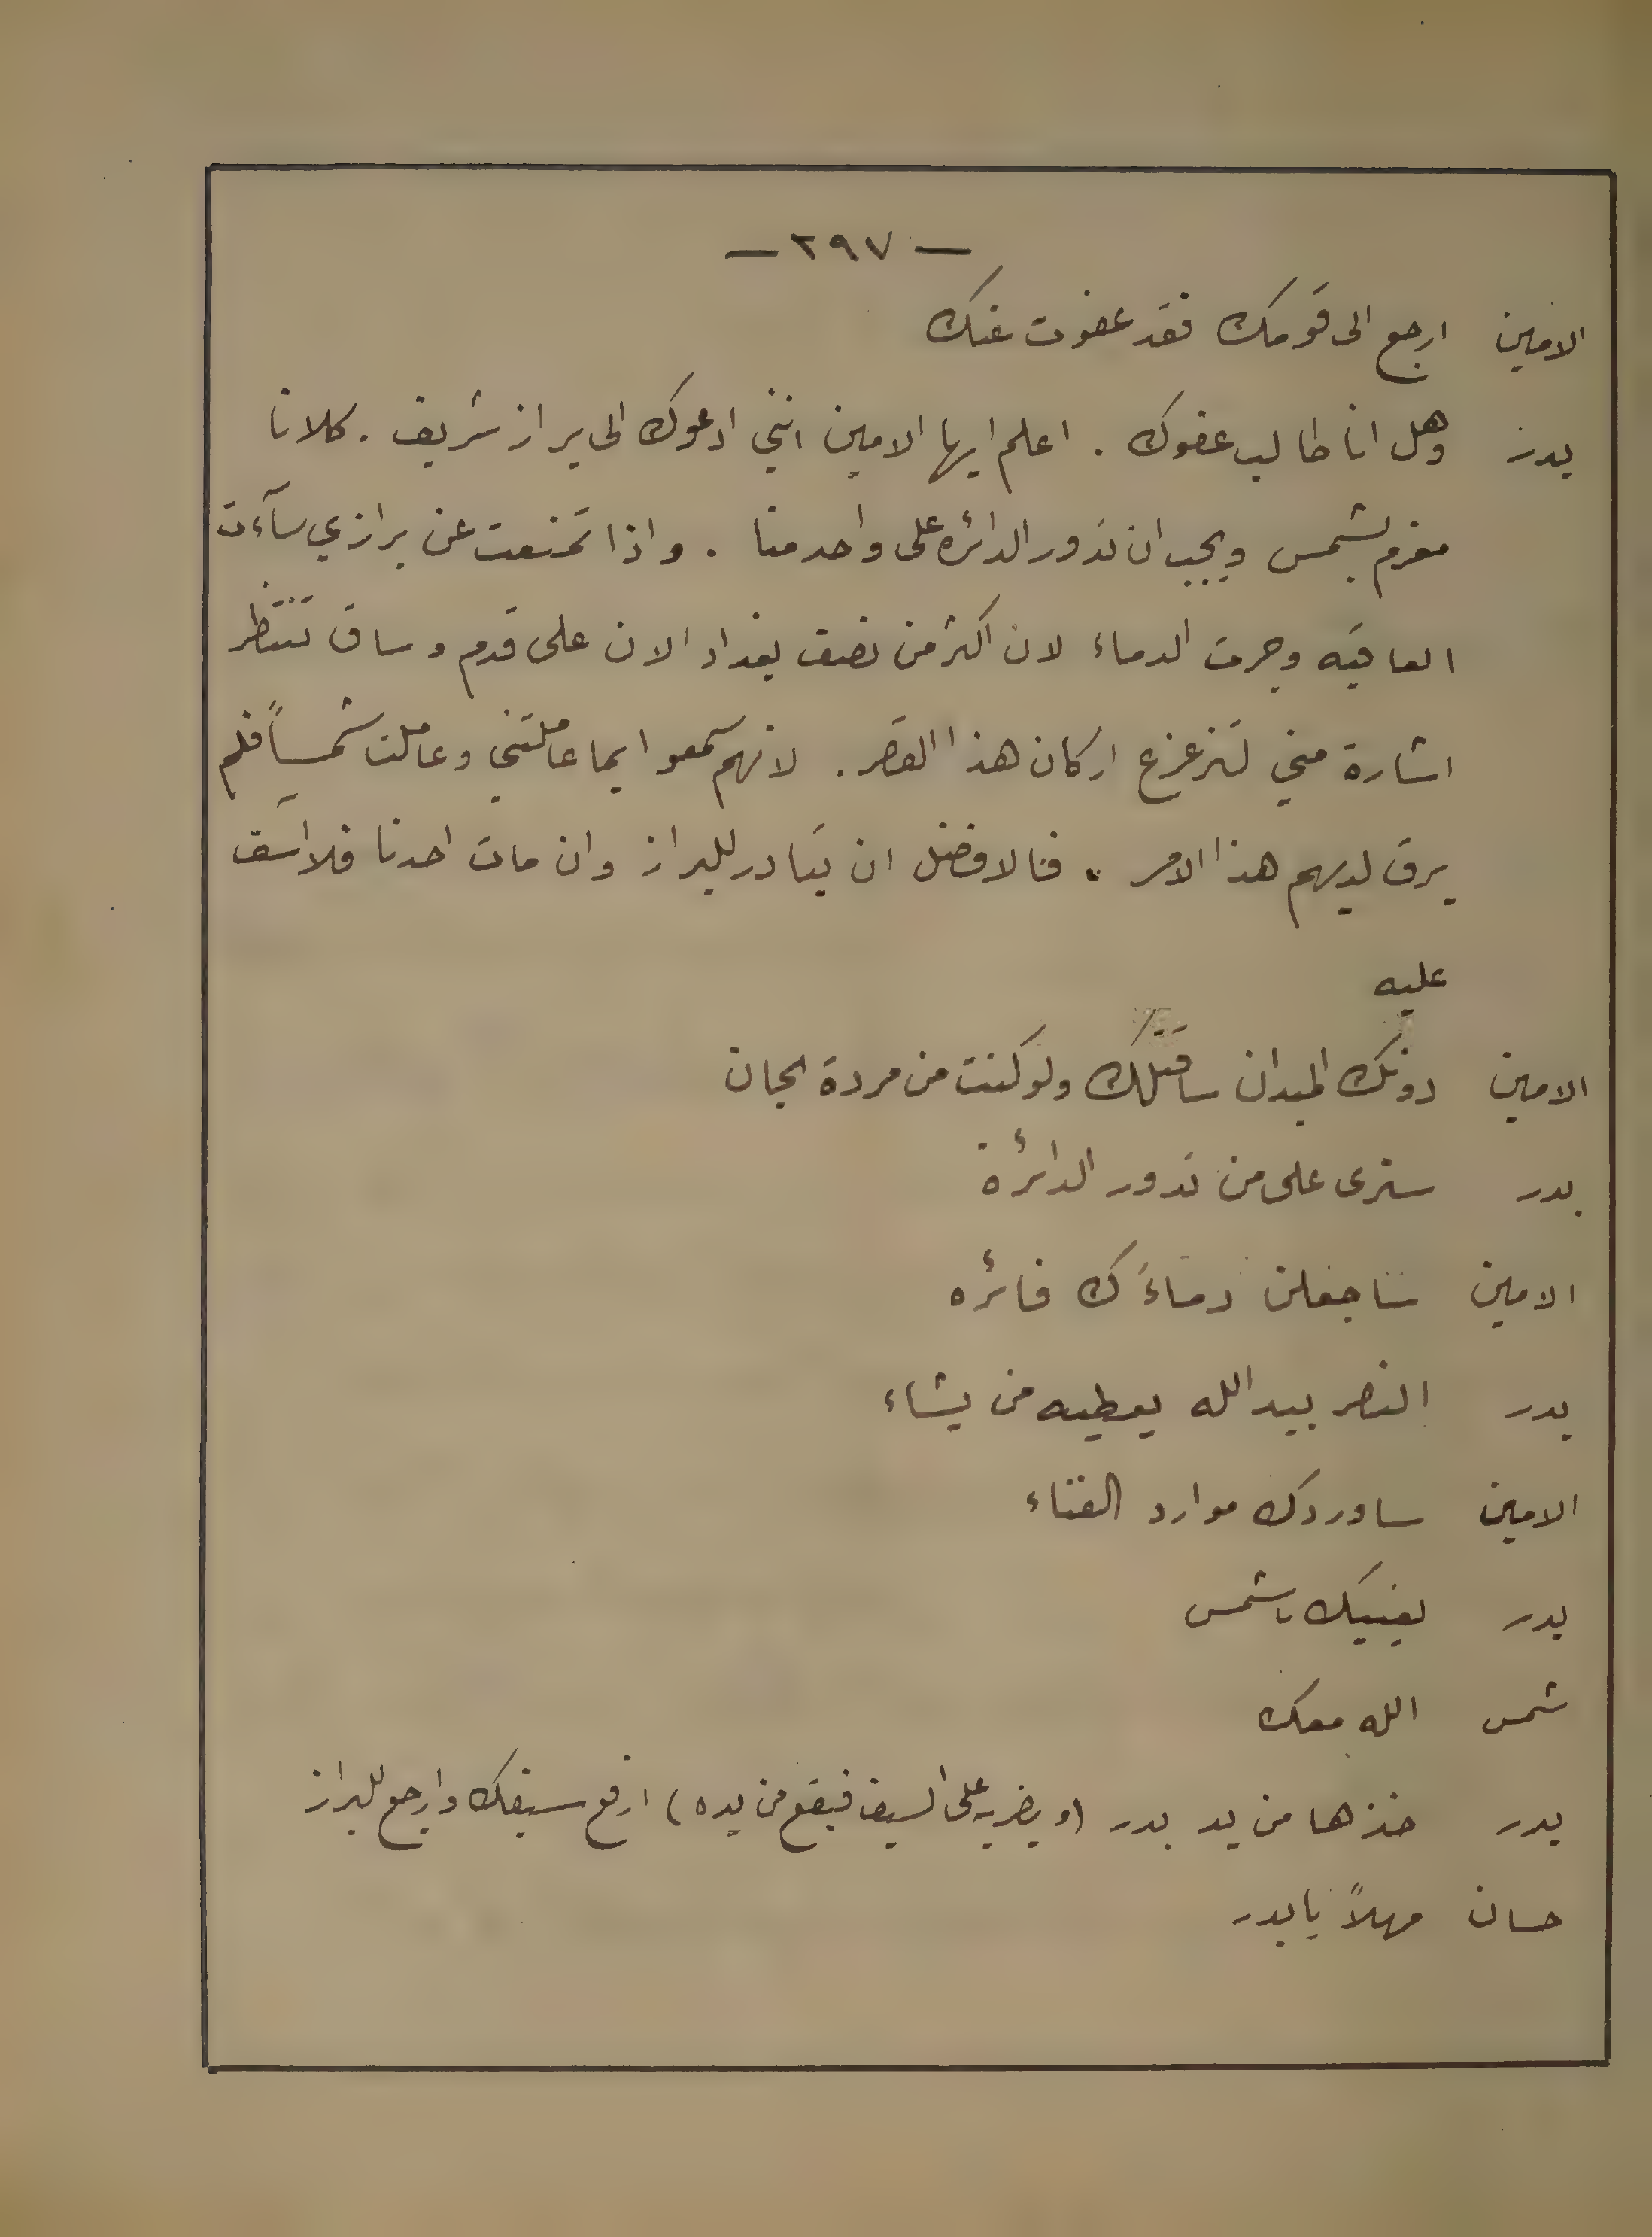 — ٢٩٧ —
الامين ارجع الى قومك فقد عفوت عنك
بدر وهل انا طالب عفوك . اعلم ايها الامين انني ادعوك الى براز شريف . كلانا
مغرم بشمس ويجب ان تدور الدائره على واحد منا . واذا تمنعت عن برازي سآءت
العاقبه وجرت الدماء لان اكثر من نصف بغداد الان على قدم وساق تنتظر
اشارة مني لتزعزع اركان هذا القصر . لانهم سمعوا بما عاملتني وعاملت شمساً فلم
يرق لديهم هذا الامر . فالافضل ان نبادر للبراز وان مات احدنا فلا اسف
عليه
الامين دونك الميدان ساقتلك ولو كنت من مردة الجان
بدر سترى على من تدور الدائرة
الامين ساجعلن دماءَك فائره
بدر النصر بيد الله يعطيه من يشاء
الامين ساوردك موارد الفناء
بدر بعينيك يا شمس
شمس الله معك
بدر خذها من يد بدر (ويضربه على السيف فيقع من يده) ارفع سيفك وارجع للبراز
حسان مهلاً يا بدر